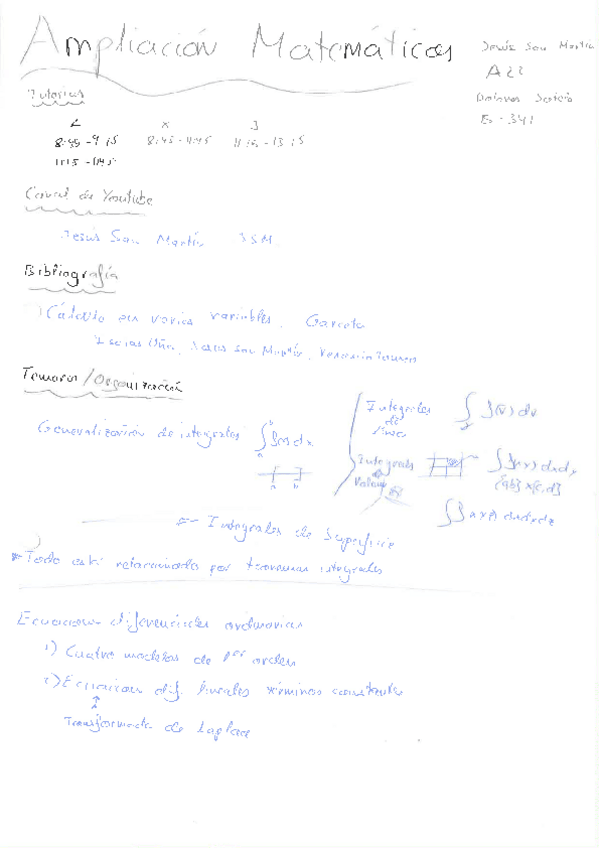 Ampliación Matemáticas
Jesús San Martín
A22
E-341
Tutorías
L X J
8:45-9:15 8:45-11:45 11:15-13:15
11:15-11:45
Canal de Youtube
Jesús San Martín JSM
Bibliografía
Cálculo en varias variables, Garceta
Uña, Jesús San Martín, Venancio Tomeo
Temario/Organización
Generalización de integrales ∫ f(x) dx
a b
Integrales de línea
Integrales
[a,b]x[c,d]
Integrales de Superficie
Todo está relacionado por teoremas integrales
Ecuaciones diferenciales ordinarias
1) Cuatro modelos de 1er orden
2) Ecuaciones dif. lineales términos constantes
Transformada de Laplace